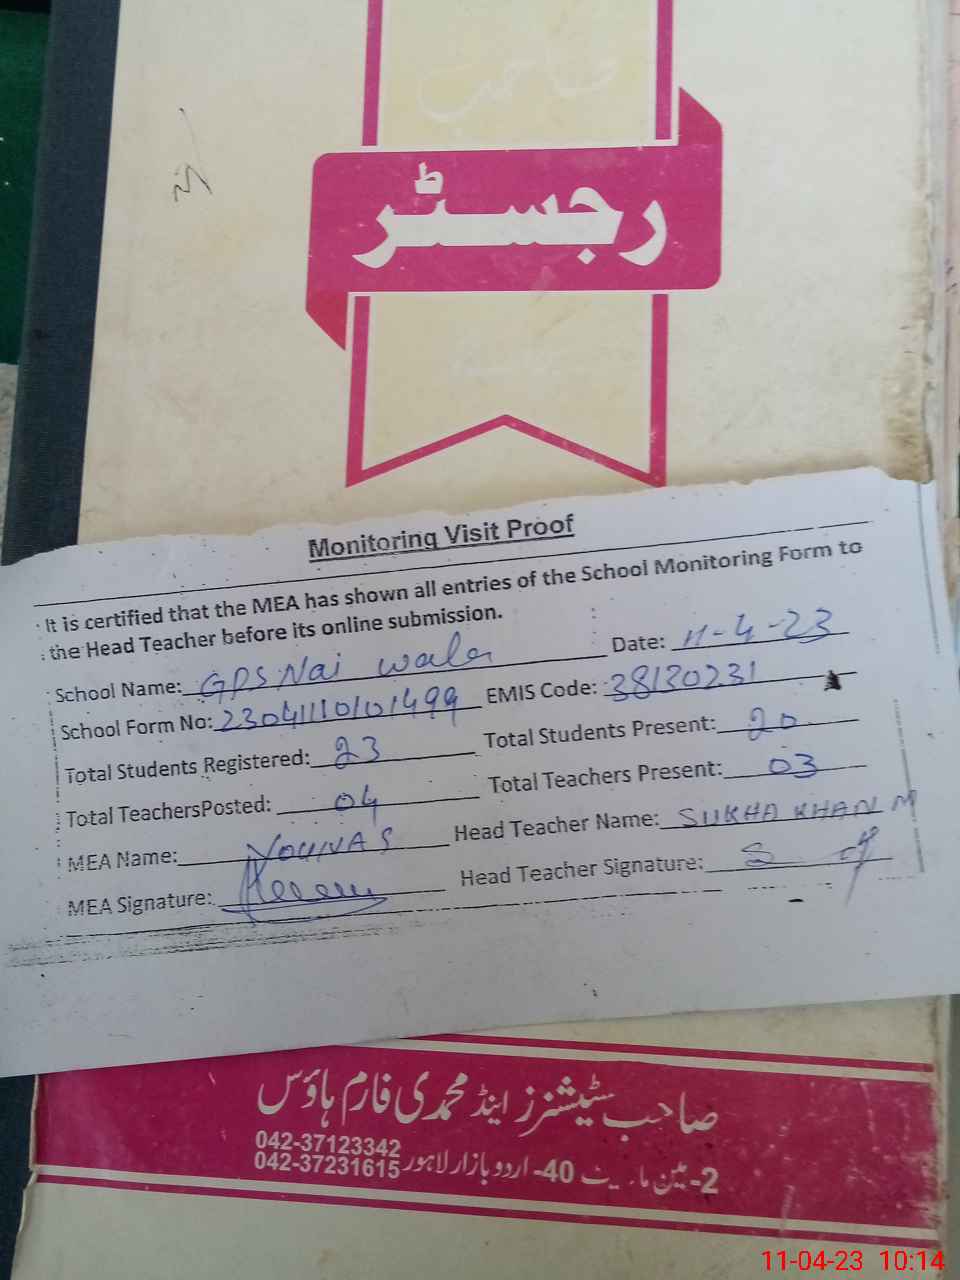 صاحب
رجسٹر
Monitoring Visit Proof
It is certified that the MEA has shown all entries of the School Monitoring Form to
the Head Teacher before its online submission.
School Name: GPS Nai Wala Date: 11-4-23
School Form No: 23041110101499 EMIS Code: 38130231
Total Students Registered: 23 Total Students Present: 20
Total TeachersPosted: 04 Total Teachers Present: 03
MEA Name: Head Teacher Name: SUKHA KHAN M
MEA Signature: Head Teacher Signature:
صاحب سٹیشنرز اینڈ محمدی فارم ہاؤس
042-37123342
042-37231615
2-مین مارکیٹ 40-اردو بازار لاہور
11-04-23 10:14